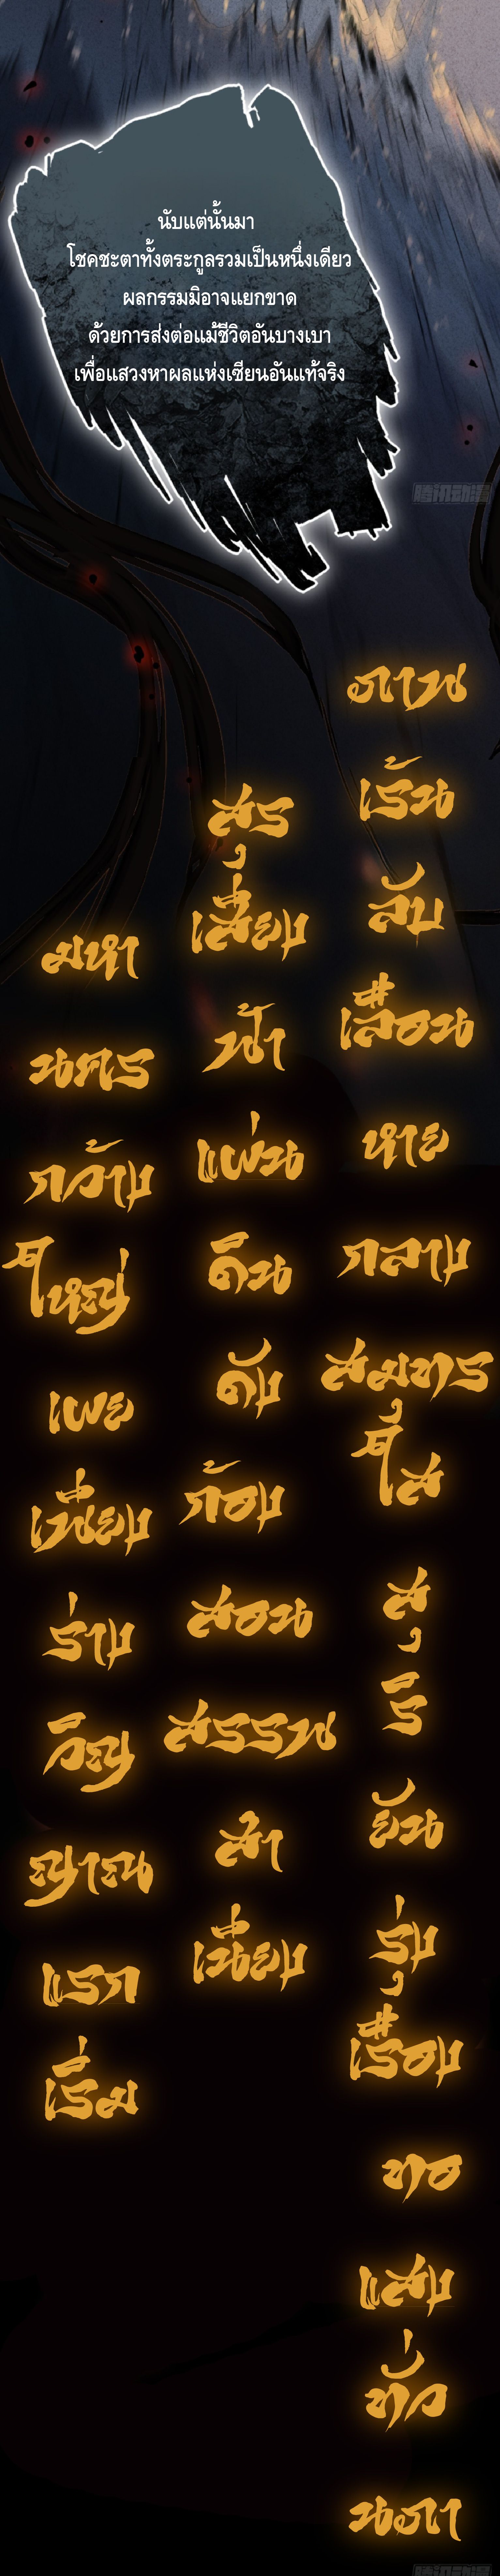 นับแต่นั้นมา
โชคชะตาทั้งตระกูลรวมเป็นหนึ่งเดียว
ผลกรรมมิอาจแยกขาด
ด้วยการส่งต่อแม้ชีวิตอันบางเบา
เพื่อแสวงหาผลแห่งเซียนอันแท้จริง
腾讯动漫
กาน
เร้น
ลับ
เลือน
หาย
กลาง
สมุทร
ใส
สุ
ริ
ยัน
รุ่ง
เรือง
ทอ
แสง
ทั่ว
นภา
สุร
เสียง
ฟ้า
แผ่น
ดิน
ดัง
ก้อง
สอน
สรรพ
สำ
เนียง
มหา
นคร
กว้าง
ใหญ่
เผย
เพียง
ร่าง
วิญ
ญาณ
แรก
เริ่ม